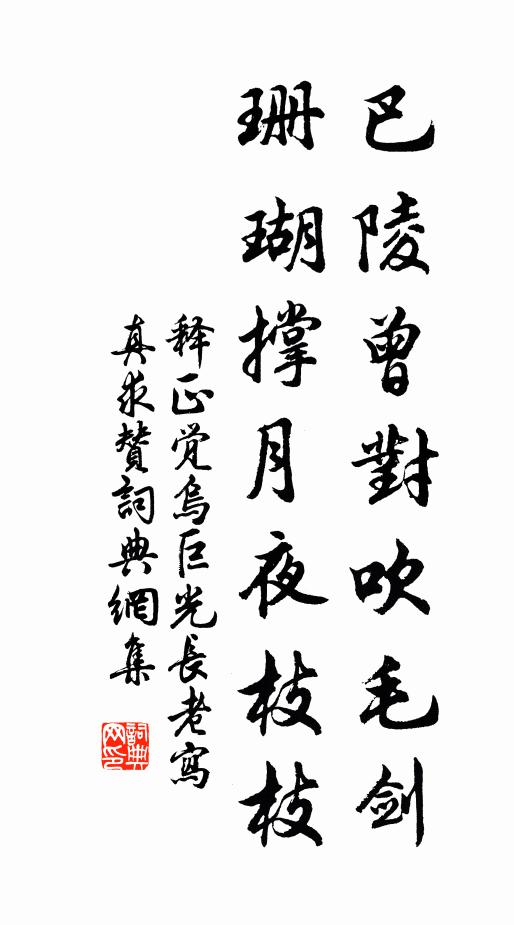 巴陵曾對吹毛剑
珊瑚撐月夜枝枝
释正觉烏巨光長老寫
真求贊詞典網集
詞典網印